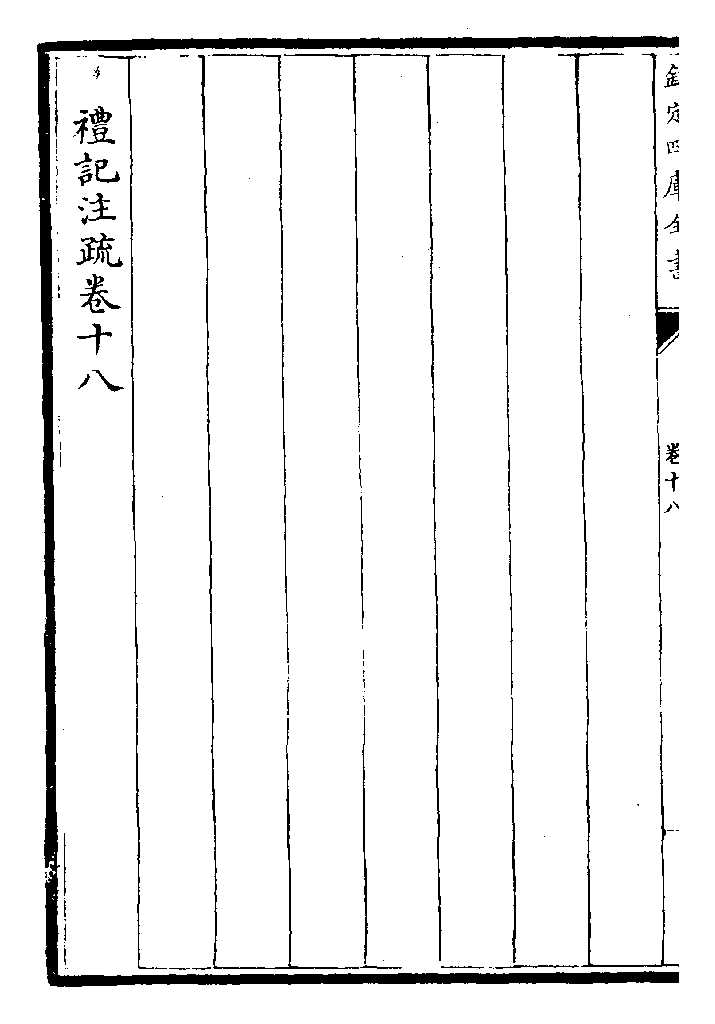 欽定四庫全書
卷十八
禮記注疏卷十八